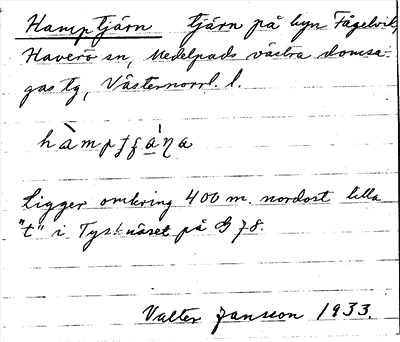 Hamptjärn tjärn på byn Fågelvik,
Haverö sn, Medelpads västra domsa-
gas tg, Västernorrl. l.
Ligger omkring 400 m. nordost lilla
"t" i Tysknäset på G 78.
Valter Jansson 1933.